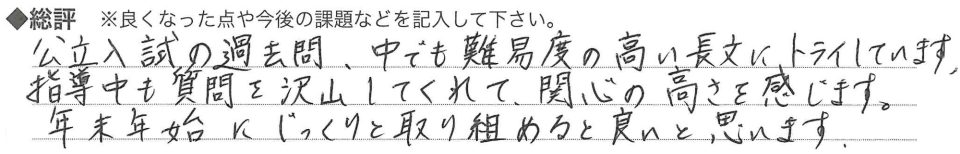 ◆総評 ※良くなった点や今後の課題などを記入して下さい。
公立入試の過去問、中でも難易度の高い長文にトライしています。
指導中も質問を沢山してくれて、関心の高さを感じます。
年末年始にじっくりと取り組めると良いと思います.